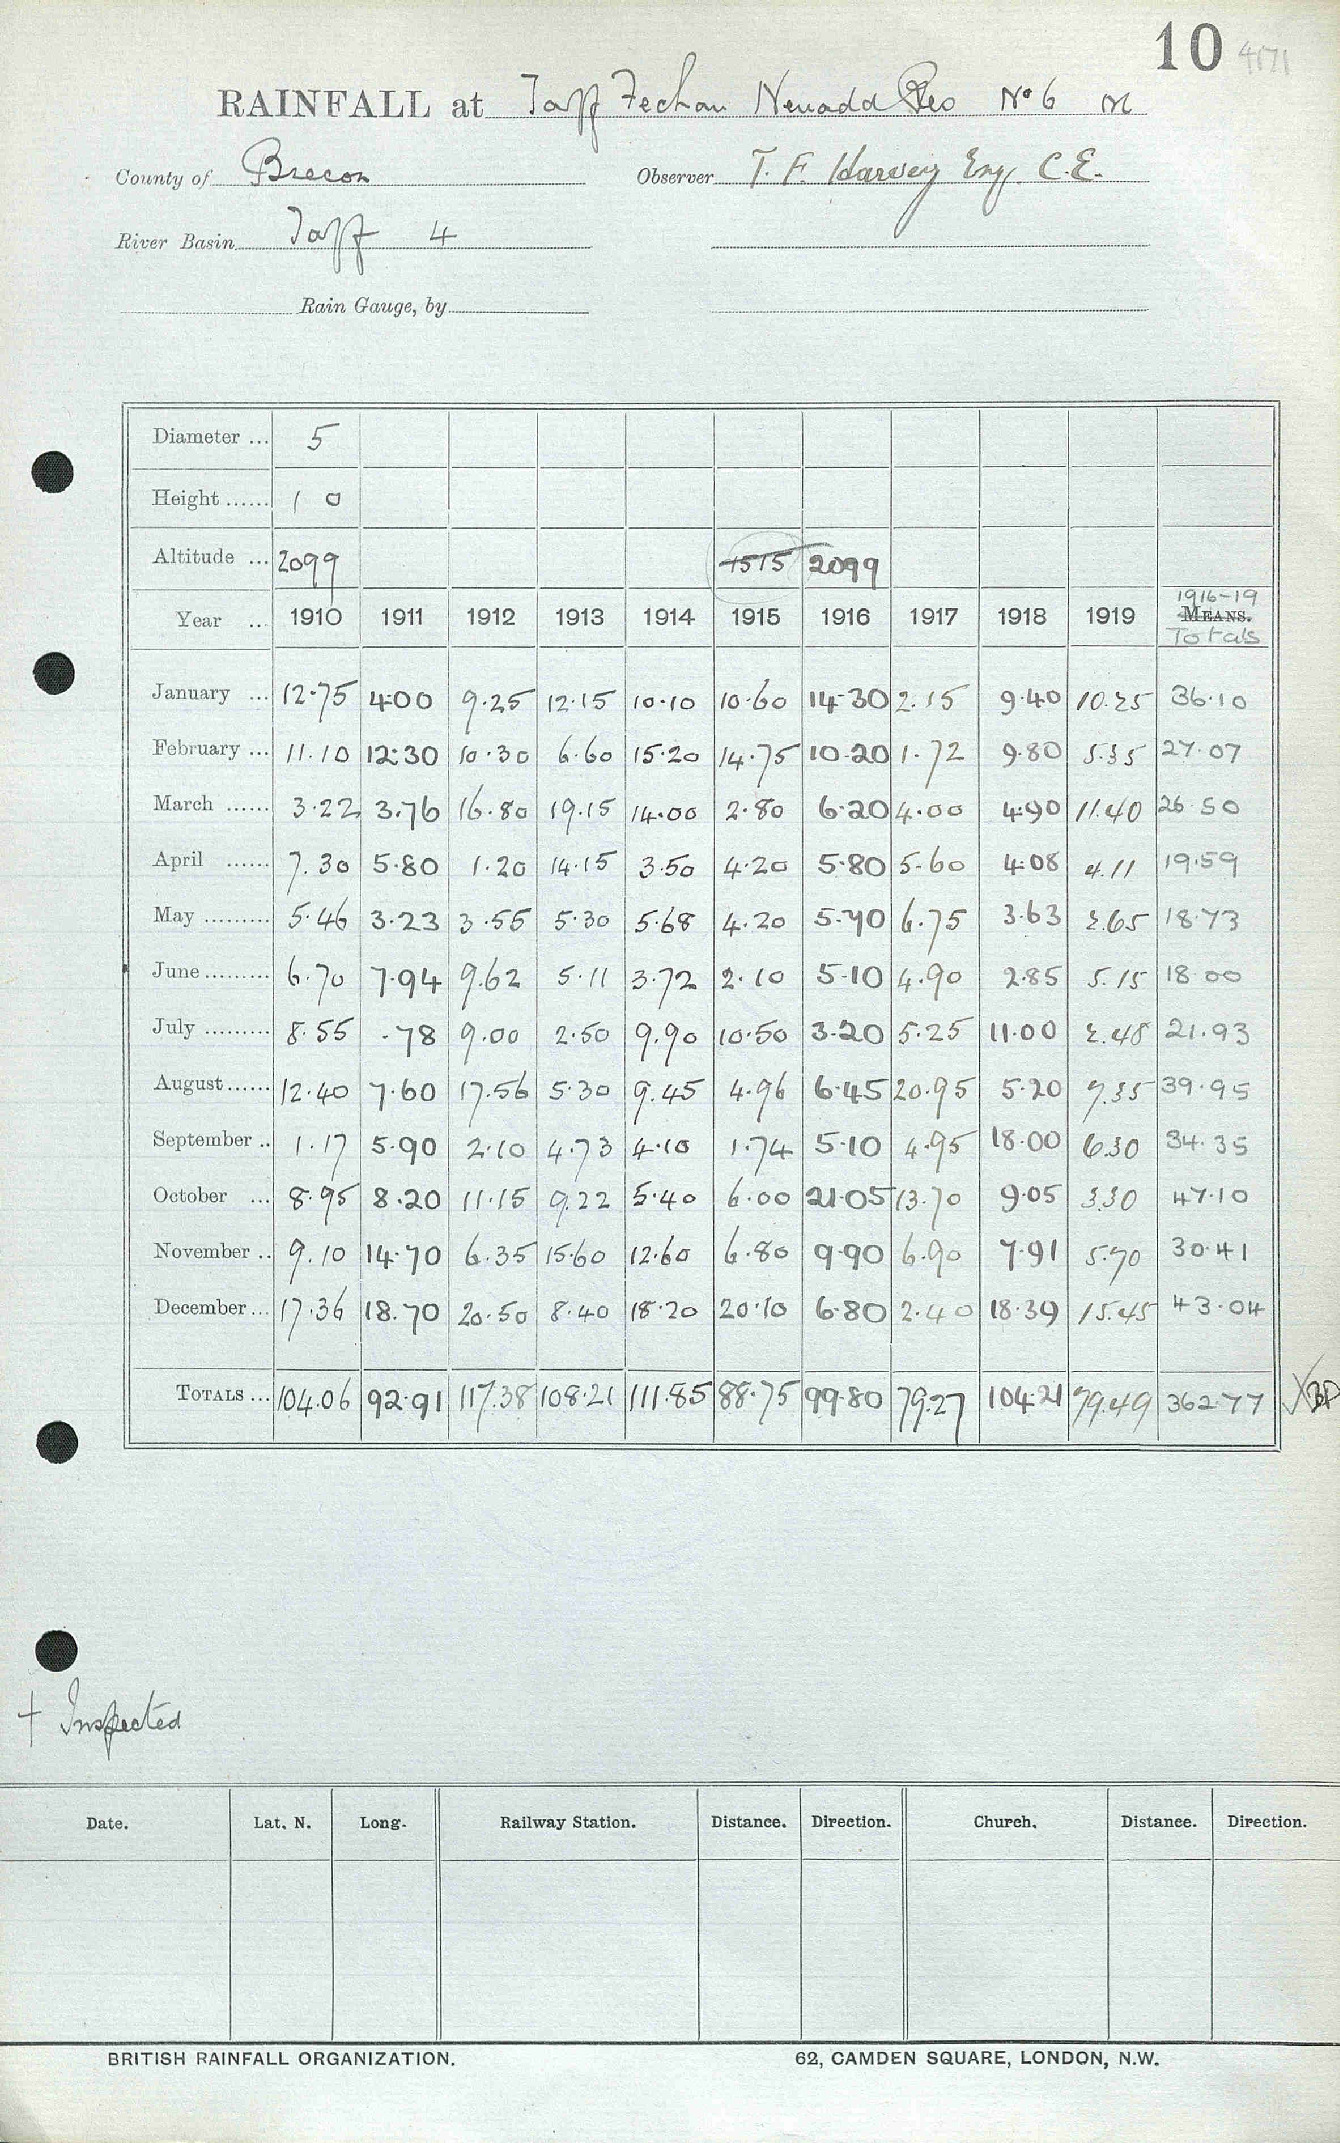 10 4171
RAINFALL at Taff Fechan Neuadd Res No 6 M
County of Brecon Observer T. F. Harvey Esq. C.E.
River Basin Taff 4
Rain Gauge, by
Diameter ... 5
Height ...... 1 0
Altitude ... 2099 1515 2099
Year .. 1910 1911 1912 1913 1914 1915 1916 1917 1918 1919 1916-19 MEANS. Totals
January ... 12.75 4.00 9.25 12.15 10.10 10.60 14.30 2.15 9.40 10.25 36.10
February ... 11.10 12.30 10.30 6.60 15.20 14.75 10.20 1.72 9.80 5.35 27.07
March ...... 3.22 3.76 16.80 19.15 14.00 2.80 6.20 4.00 4.90 11.40 26.50
April ...... 7.30 5.80 1.20 14.15 3.50 4.20 5.80 5.60 4.08 4.11 19.59
May ......... 5.46 3.23 3.55 5.30 5.68 4.20 5.70 6.75 3.63 2.65 18.73
June ......... 6.70 7.94 9.62 5.11 3.72 2.10 5.10 4.90 2.85 5.15 18.00
July ......... 8.55 .78 9.00 2.50 9.90 10.50 3.20 5.25 11.00 2.48 21.93
August ...... 12.40 7.60 17.56 5.30 9.45 4.96 6.45 20.95 5.20 7.35 39.95
September .. 1.17 5.90 2.10 4.73 4.10 1.74 5.10 4.95 18.00 6.30 34.35
October ... 8.95 8.20 11.15 9.22 5.40 6.00 21.05 13.70 9.05 3.30 47.10
November .. 9.10 14.70 6.35 15.60 12.60 6.80 9.90 6.90 7.91 5.70 30.41
December ... 17.36 18.70 20.50 8.40 18.20 20.10 6.80 2.40 18.39 15.45 43.04
TOTALS ... 104.06 92.91 117.38 108.21 111.85 88.75 99.80 79.27 104.21 79.49 362.77
† Inspected
Date. Lat. N. Long. Railway Station. Distance. Direction. Church. Distance. Direction.
BRITISH RAINFALL ORGANIZATION. 62, CAMDEN SQUARE, LONDON, N.W.